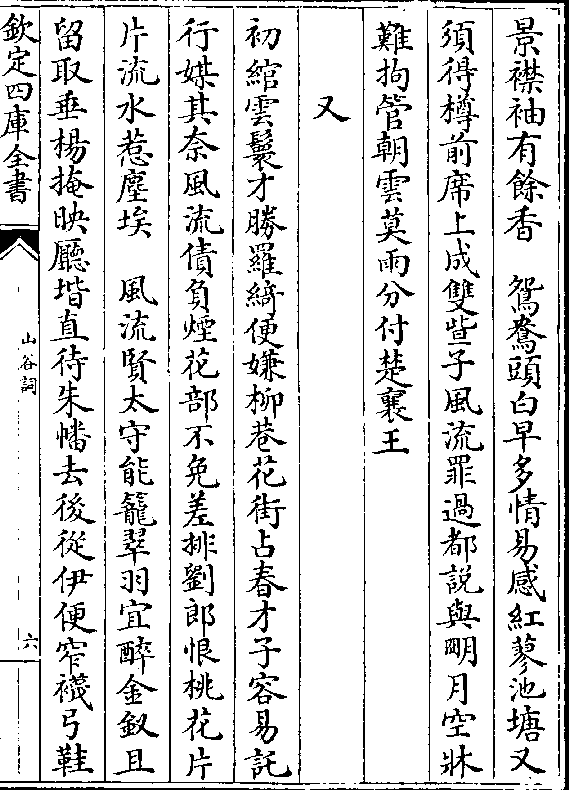 景襟袖有餘香　鴛鴦頭白早多情易感紅蓼池塘又
須得樽前席上成雙些子風流罪過都說與明月空牀
難拘管朝雲莫雨分付楚襄王
又
初綰雲鬟才勝羅綺便嫌柳巷花街占春才子容易託
行媒其奈風流債負煙花部不免差排劉郎恨桃花片
片流水惹塵埃　風流賢太守能籠翠羽宜醉金釵且
留取垂楊掩映廳堦直待朱幡去後從伊便窄襪弓鞋
欽定四庫全書
山谷詞
六